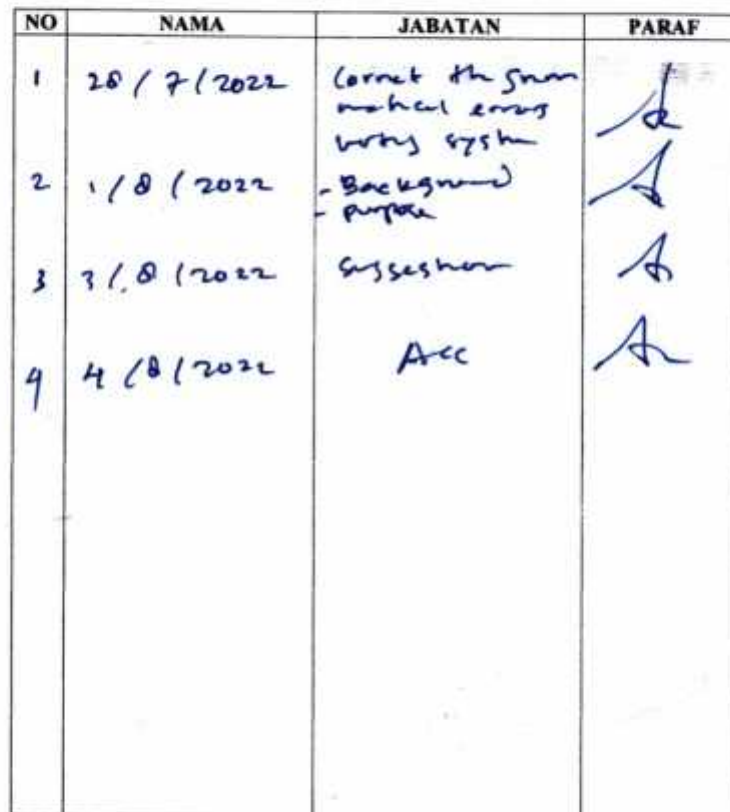 NO NAMA JABATAN PARAF
1 28/7/2022 Correct the gram
matical errors
writing system
2 1/8/2022 - Background
- purpose
3 3/8/2022 suggestion
4 4/8/2022 Acc